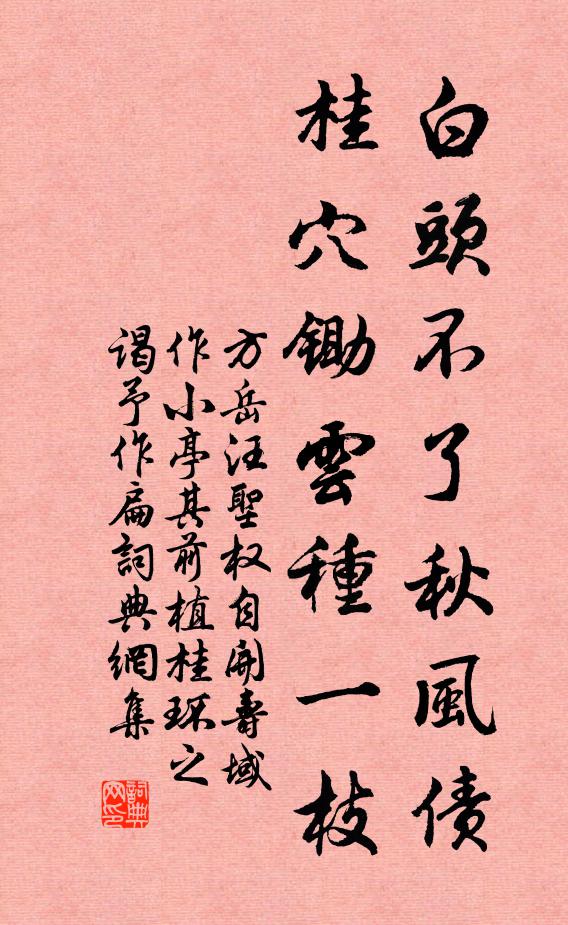 白頭不了秋風債
桂穴鋤雲種一枝
方岳汪聖权自開壽域
作小亭其前植桂环之
谒予作扁詞典網集
詞典网印